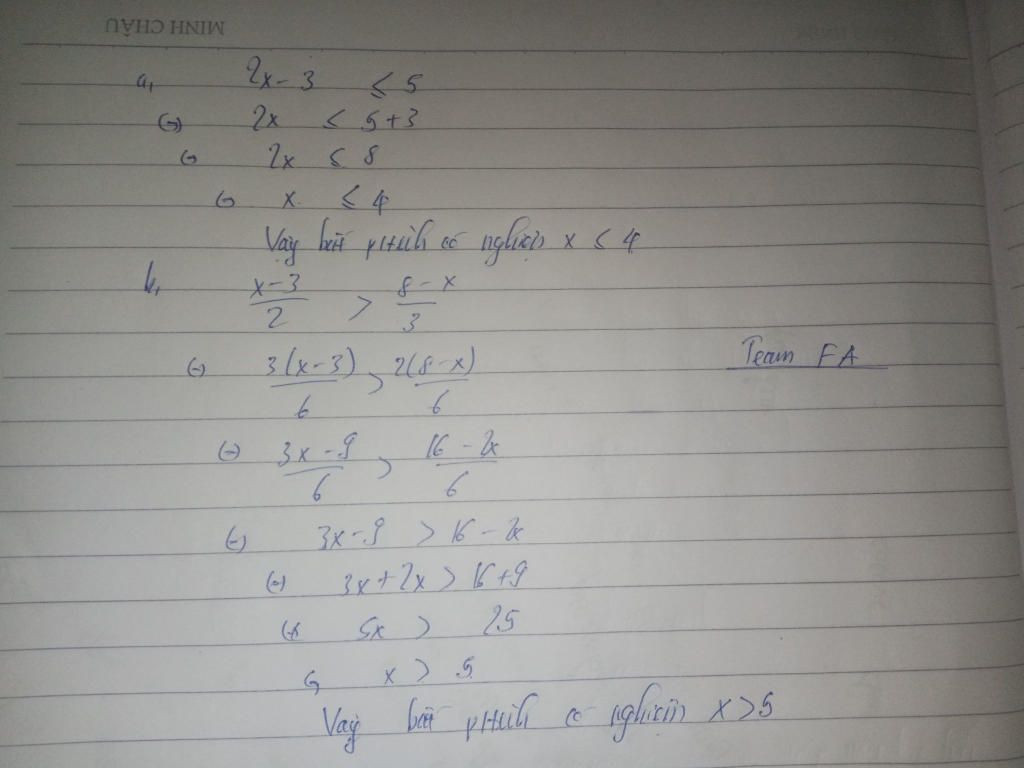 MINH CHÂU
a, 2x - 3 ≤ 5
(=) 2x ≤ 5 + 3
(=) 2x ≤ 8
(=) x ≤ 4
Vậy bất ptrình có nghiệm x ≤ 4
b, \frac{x-3}{2} > \frac{8-x}{3}
(=) \frac{3(x-3)}{6} > \frac{2(8-x)}{6}
Team FA
(=) \frac{3x-9}{6} > \frac{16-2x}{6}
(=) 3x - 9 > 16 - 2x
(=) 3x + 2x > 16 + 9
(=) 5x > 25
(=) x > 5
Vậy bất ptrình có nghiệm x > 5